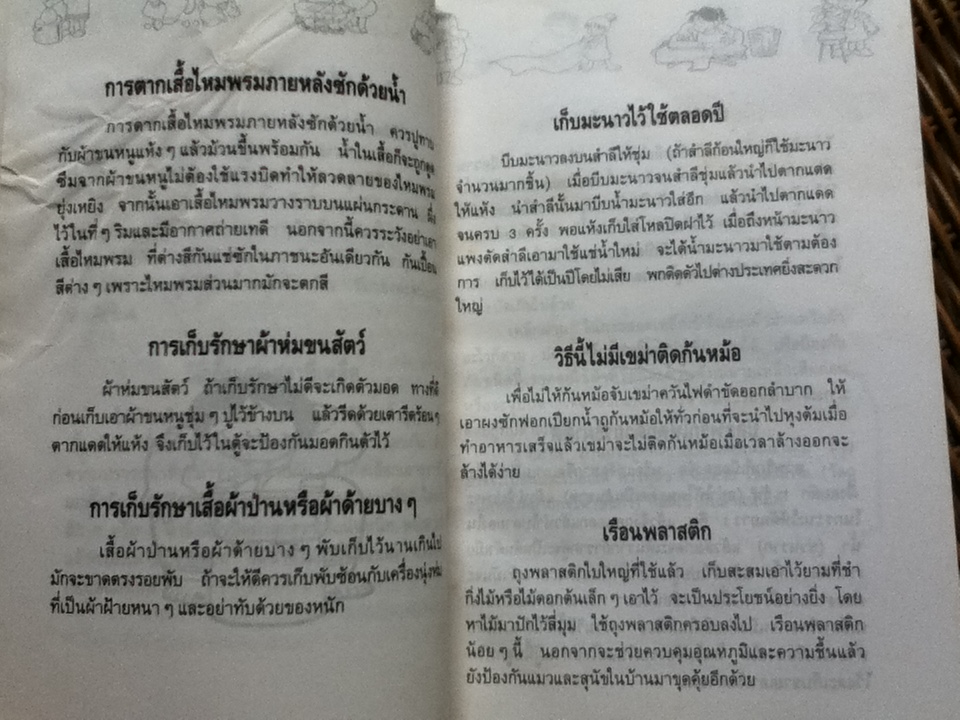 การตากเสื้อไหมพรมภายหลังซักด้วยน้ำ
การตากเสื้อไหมพรมภายหลังซักด้วยน้ำ ควรปูทาบ
กับผ้าขนหนูแห้ง ๆ แล้วม้วนขึ้นพร้อมกัน น้ำในเสื้อก็จะถูกดูด
ซึมจากผ้าขนหนูไม่ต้องใช้แรงบิดทำให้ลวดลายของไหมพรม
ยุ่งเหยิง จากนั้นเอาเสื้อไหมพรมวางราบบนแผ่นกระดาน ผึ่ง
ไว้ในที่ ๆ ริมและมีอากาศถ่ายเทดี นอกจากนี้ควรระวังอย่าเอา
เสื้อไหมพรม ที่ต่างสีกันแช่ซักในภาชนะอันเดียวกัน กันเปื้อน
สีต่าง ๆ เพราะไหมพรมส่วนมากมักจะตกสี
การเก็บรักษาผ้าห่มขนสัตว์
ผ้าห่มขนสัตว์ ถ้าเก็บรักษาไม่ดีจะเกิดตัวมอด ทางที่ดี
ก่อนเก็บเอาผ้าขนหนูชุ่ม ๆ ปูไว้ข้างบน แล้วรีดด้วยเตารีดร้อน ๆ
ตากแดดให้แห้ง จึงเก็บไว้ในตู้จะป้องกันมอดกินตัวไว้
การเก็บรักษาเสื้อผ้าป่านหรือผ้าด้ายบาง ๆ
เสื้อผ้าป่านหรือผ้าด้ายบาง ๆ พับเก็บไว้นานเกินไป
มักจะขาดตรงรอยพับ ถ้าจะให้ดีควรเก็บพับซ้อนกับเครื่องนุ่งห่ม
ที่เป็นผ้าฝ้ายหนา ๆ และอย่าทับด้วยของหนัก
เก็บมะนาวไว้ใช้ตลอดปี
บีบมะนาวลงบนสำลีให้ชุ่ม (ถ้าสำลีก้อนใหญ่ก็ใช้มะนาว
จำนวนมากขึ้น) เมื่อบีบมะนาวจนสำลีชุ่มแล้วนำไปตากแดด
ให้แห้ง นำสำลีนั้นมาบีบน้ำมะนาวใส่อีก แล้วนำไปตากแดด
จนครบ 3 ครั้ง พอแห้งเก็บใส่โหลปิดฝาไว้ เมื่อถึงหน้ามะนาว
แพงตัดสำลีเอามาใช้แช่น้ำใหม่ จะได้น้ำมะนาวมาใช้ตามต้อง
การ เก็บไว้ได้เป็นปีโดยไม่เสีย พกติดตัวไปต่างประเทศยิ่งสะดวก
ใหญ่
วิธีนี้ไม่มีเขม่าติดก้นหม้อ
เพื่อไม่ให้ก้นหม้อจับเขม่าควันไฟดำขัดออกลำบาก ให้
เอาผงซักฟอกเปียกน้ำถูก้นหม้อให้ทั่วก่อนที่จะนำไปหุงต้มเมื่อ
ทำอาหารเสร็จแล้วเขม่าจะไม่ติดก้นหม้อเมื่อเวลาล้างออกจะ
ล้างได้ง่าย
เรือนพลาสติก
ถุงพลาสติกใบใหญ่ที่ใช้แล้ว เก็บสะสมเอาไว้ยามที่ชำ
กิ่งไม้หรือไม้ดอกต้นเล็ก ๆ เอาไว้ จะเป็นประโยชน์อย่างยิ่ง โดย
หาไม้มาปักไว้สี่มุม ใช้ถุงพลาสติกครอบลงไป เรือนพลาสติก
น้อย ๆ นี้ นอกจากจะช่วยควบคุมอุณหภูมิและความชื้นแล้ว
ยังป้องกันแมวและสุนัขในบ้านมาขุดคุ้ยอีกด้วย